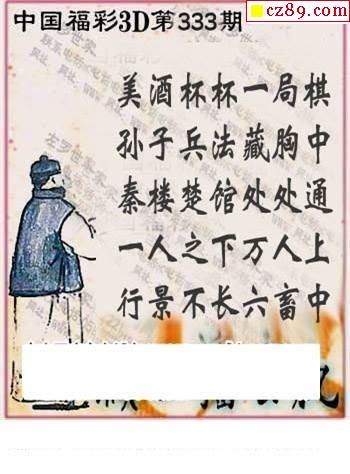 cz89.com
中国福彩3D第333期
美酒杯杯一局棋
孙子兵法藏胸中
秦楼楚馆处处通
一人之下万人上
行景不长六畜中